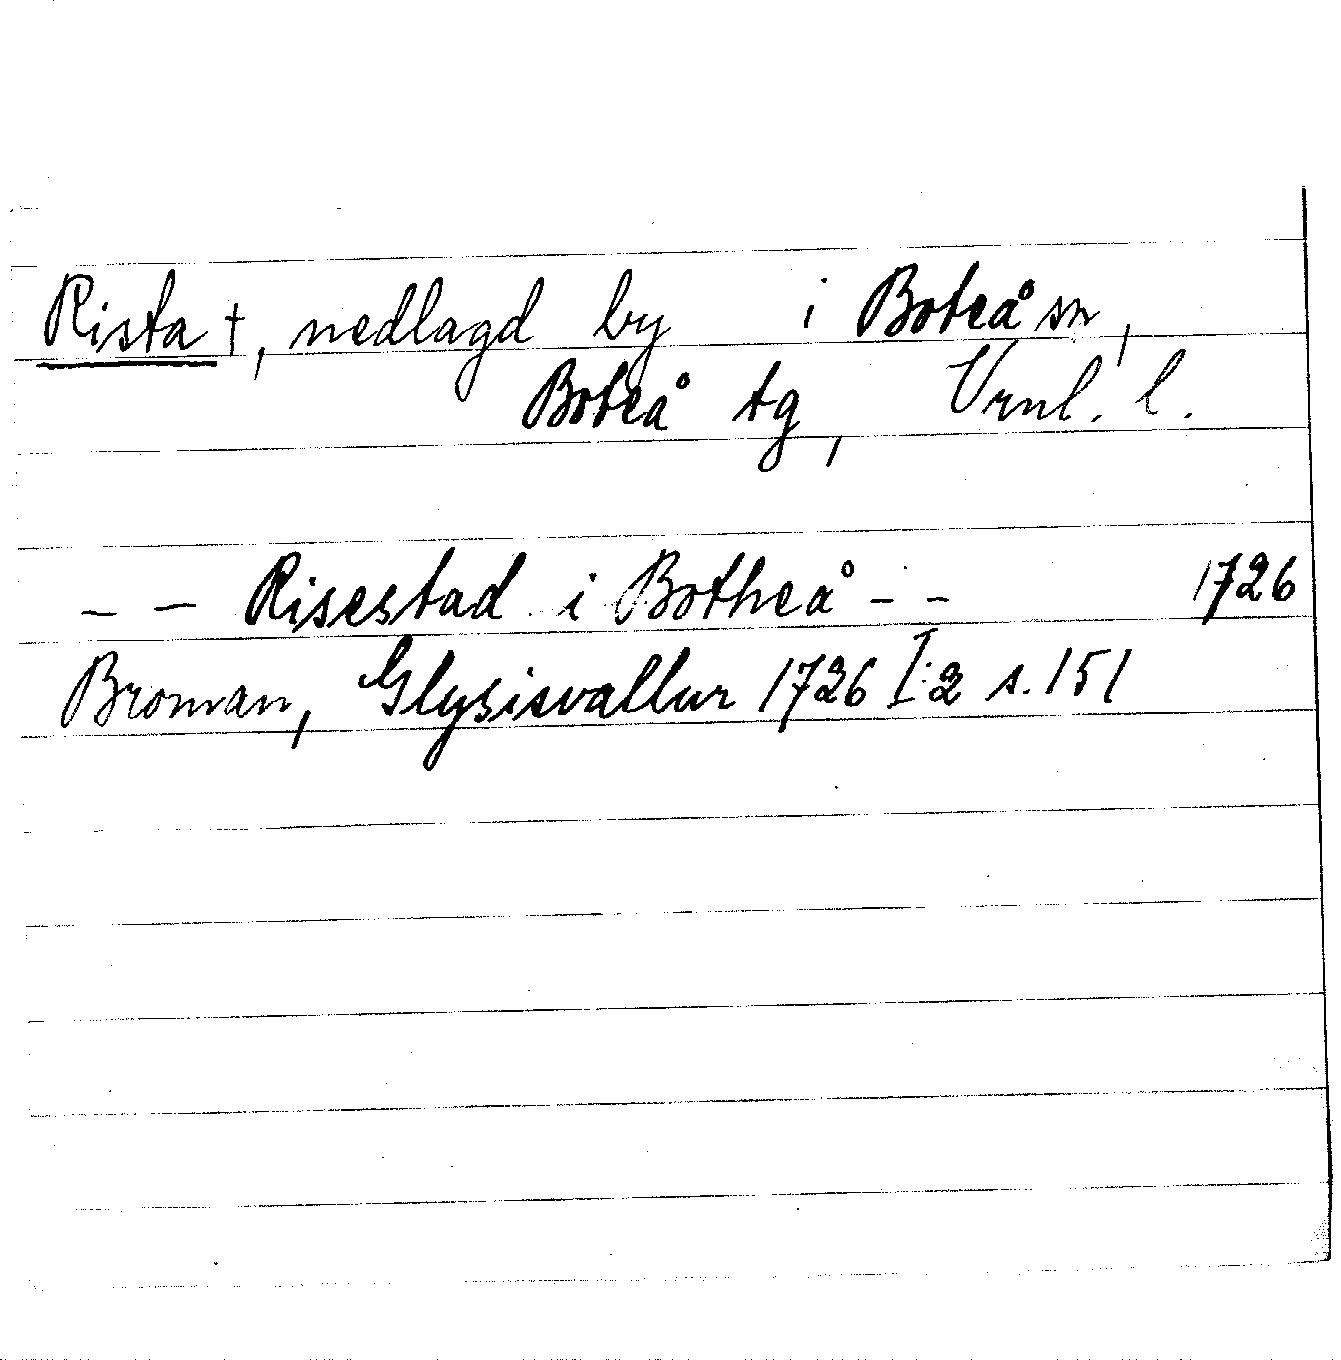 Rista †, nedlagd by i Boteå sn,
Boteå tg, Vrnl. l.
- - Risestad i Botheå - - 1726
Broman, Glysisvallur 1726 I:2 s. 151